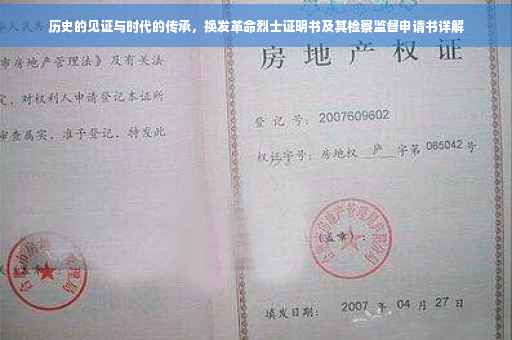 历史的见证与时代的传承，换发革命烈士证明书及其检察监督申请书详解
华人民共
市房地产管理法》及有关法
定，对权利人申请登记本证所
审查属实，准予登记，特发此
房地产权证
登记号：2007609602
权证字号：房地权 庐 字第 085042 号
(盖章)：
填发日期：2007 年 04 月 27 日